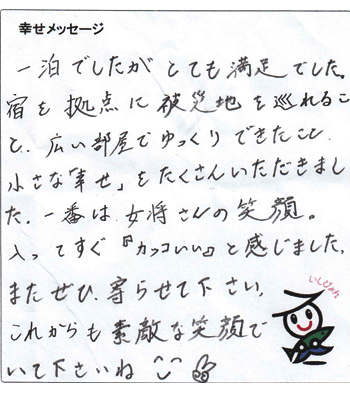 幸せメッセージ
一泊でしたが とても満足でした。
宿を拠点に被災地を巡れるこ
と、広い部屋でゆっくりできたこと、
小さな「幸せ」をたくさんいただきまし
た。一番は、女将さんの笑顔。
入ってすぐ『カッコいい』と感じました。
またぜひ、寄らせて下さい。
これからも素敵な笑顔で
いて下さいね